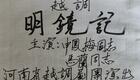 越調
明鏡記
主演:申鳳梅同志
馬蘭同志
河南省越調劇團演出